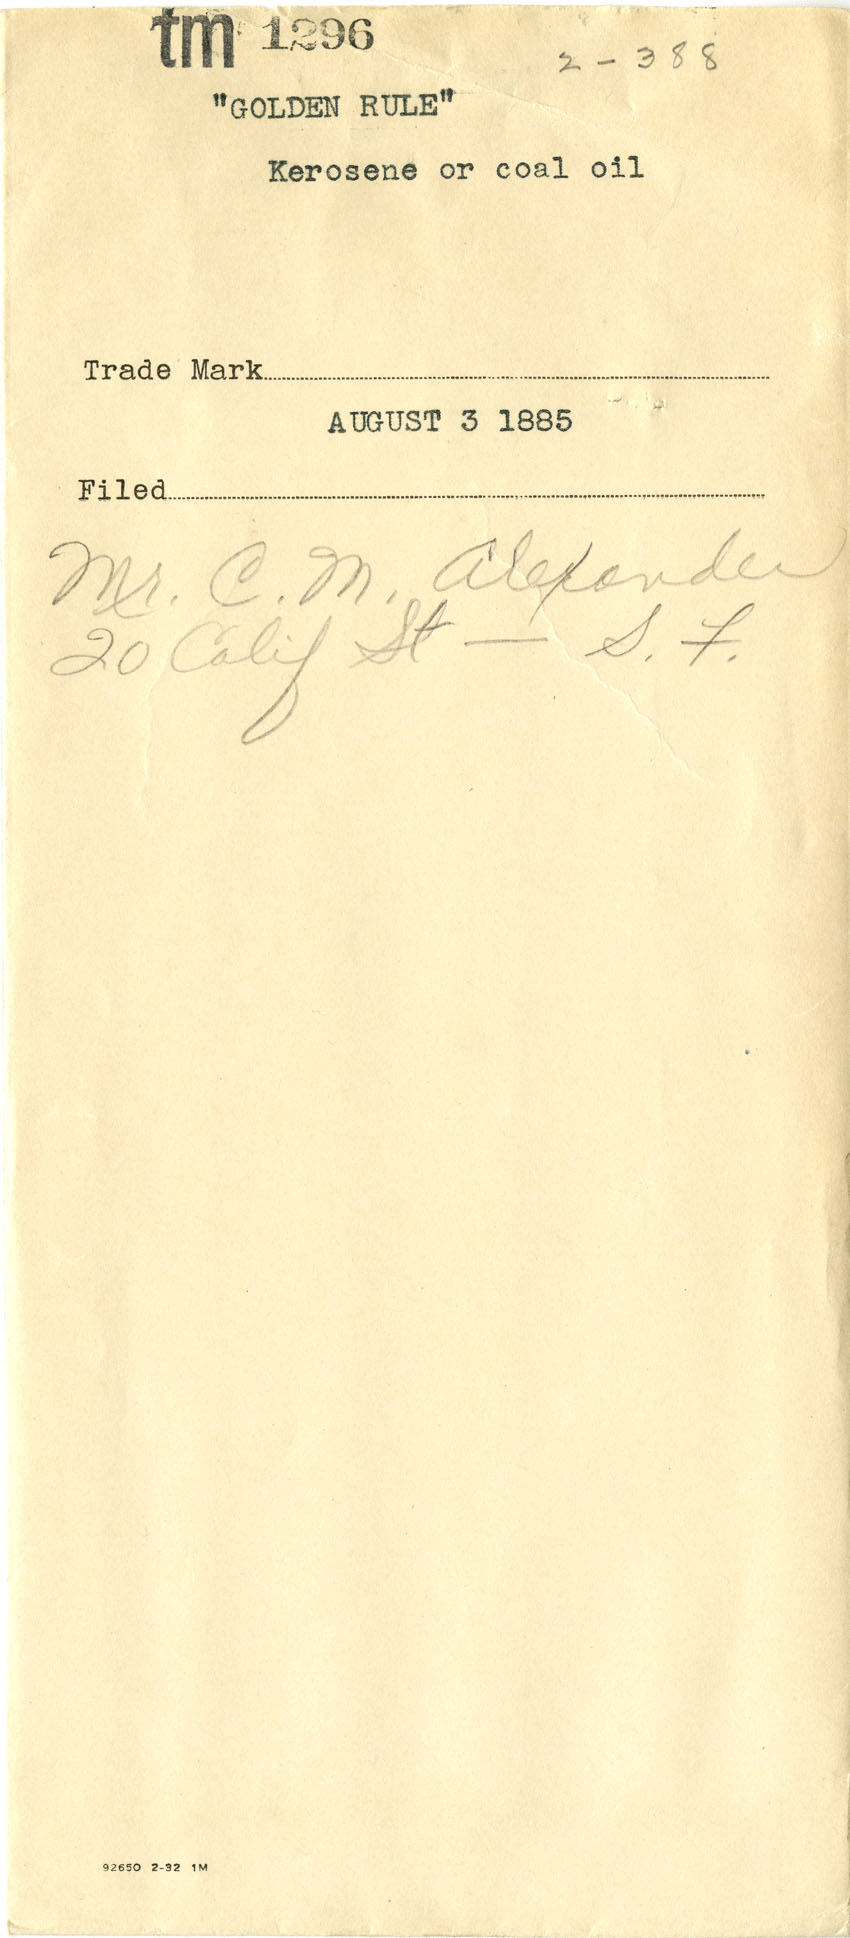 tm 1296
2-388
"GOLDEN RULE"
Kerosene or coal oil
Trade Mark
AUGUST 3 1885
Filed
Mr. C. M. Alexander
20 Calif St — S. F.
92650 2-32 1M